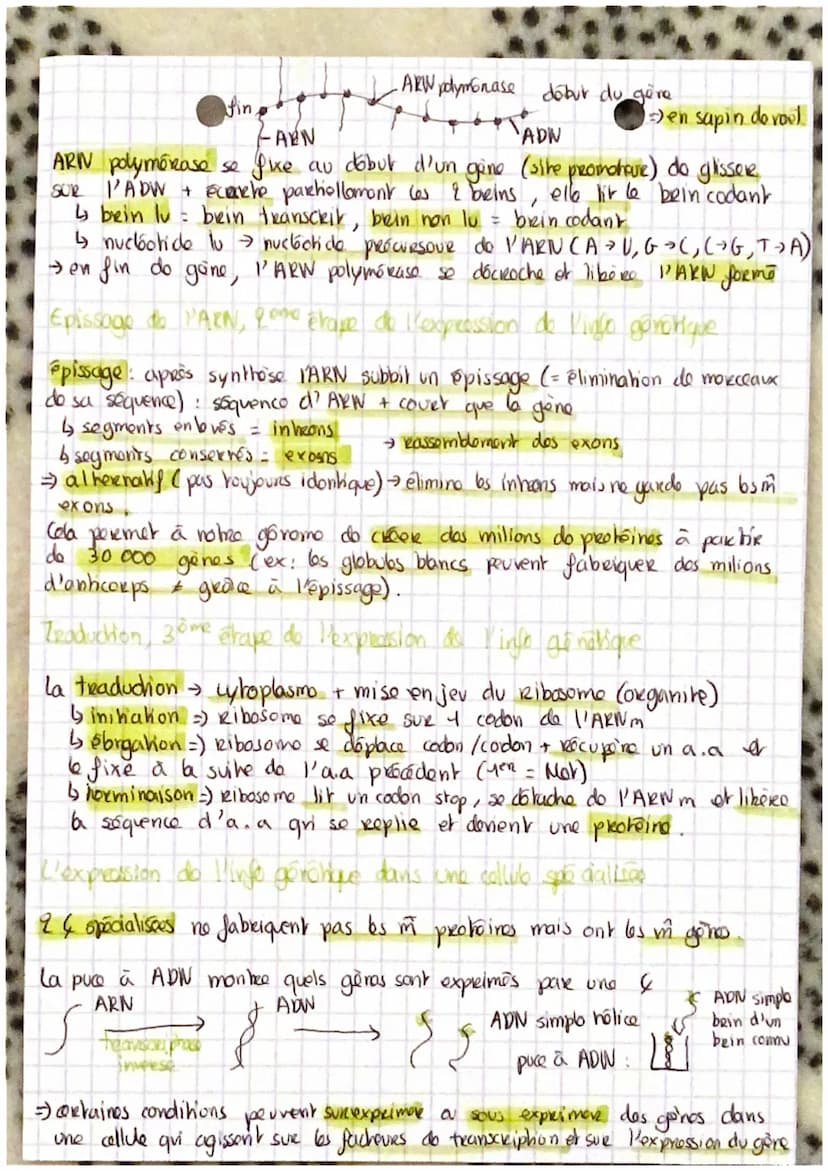 ARN polymérase
début du gène
fin
=> en sapin de noël
ARN
ADN
ARN polymérase se fixe au début d'un gène (site promoteur) de glisser
sur l'ADN + écarte partiellement les 2 brins, elle lit le brin codant
↳ brin lu = brin transcrit, brin non lu = brin codant
↳ nucléotide lu → nucléotide précurseur de l'ARN (A→U, G→C, C→G, T→A)
→ en fin de gène, l'ARN polymérase se décroche et libère l'ARN formé
Epissage de l'ARN, 2ème étape de l'expression de l'info génétique
épissage : après synthèse l'ARN subbit un épissage (= élimination de morceaux
de sa séquence) : séquence d'ARN + court que la gène
↳ segments enlevés = introns
→ rassemblement des exons
↳ segments conservés = exons
=> alternatif (pas toujours identique) → élimine les introns mais ne garde pas les m̂
exons.
Cela permet à notre génome de créer des milions de protéines à partir
de 30 000 gènes (ex: les globules blancs peuvent fabriquer des milions
d'anticorps ≠ grâce à l'épissage).
Traduction, 3ème étape de l'expression de l'info génétique
La traduction → cytoplasme + mise en jeu du ribosome (organite)
↳ initiation => ribosome se fixe sur 1 codon de l'ARNm
↳ élongation => ribosome se déplace codon/codon + récupère un a.a et
le fixe à la suite de l'a.a précédent (1er = Met)
↳ terminaison => ribosome lit un codon stop, se détache de l'ARNm et libère
la séquence d'a.a qui se replie et devient une protéine.
L'expression de l'info génétique dans une cellule spécialisée
2 ¢ spécialisées ne fabriquent pas les m̂ protéines mais ont les m̂ gène.
La puce à ADN montre quels gènes sont exprimés par une ¢
ARN
ADN
transcriptase
inverse
ADN simple hélice
puce à ADN :
ADN simple
brin d'un
brin connu
=> certaines conditions peuvent surexprimer ou sous exprimer des gènes dans
une cellule qui agissent sur les facteurs de transcription et sur l'expression du gène